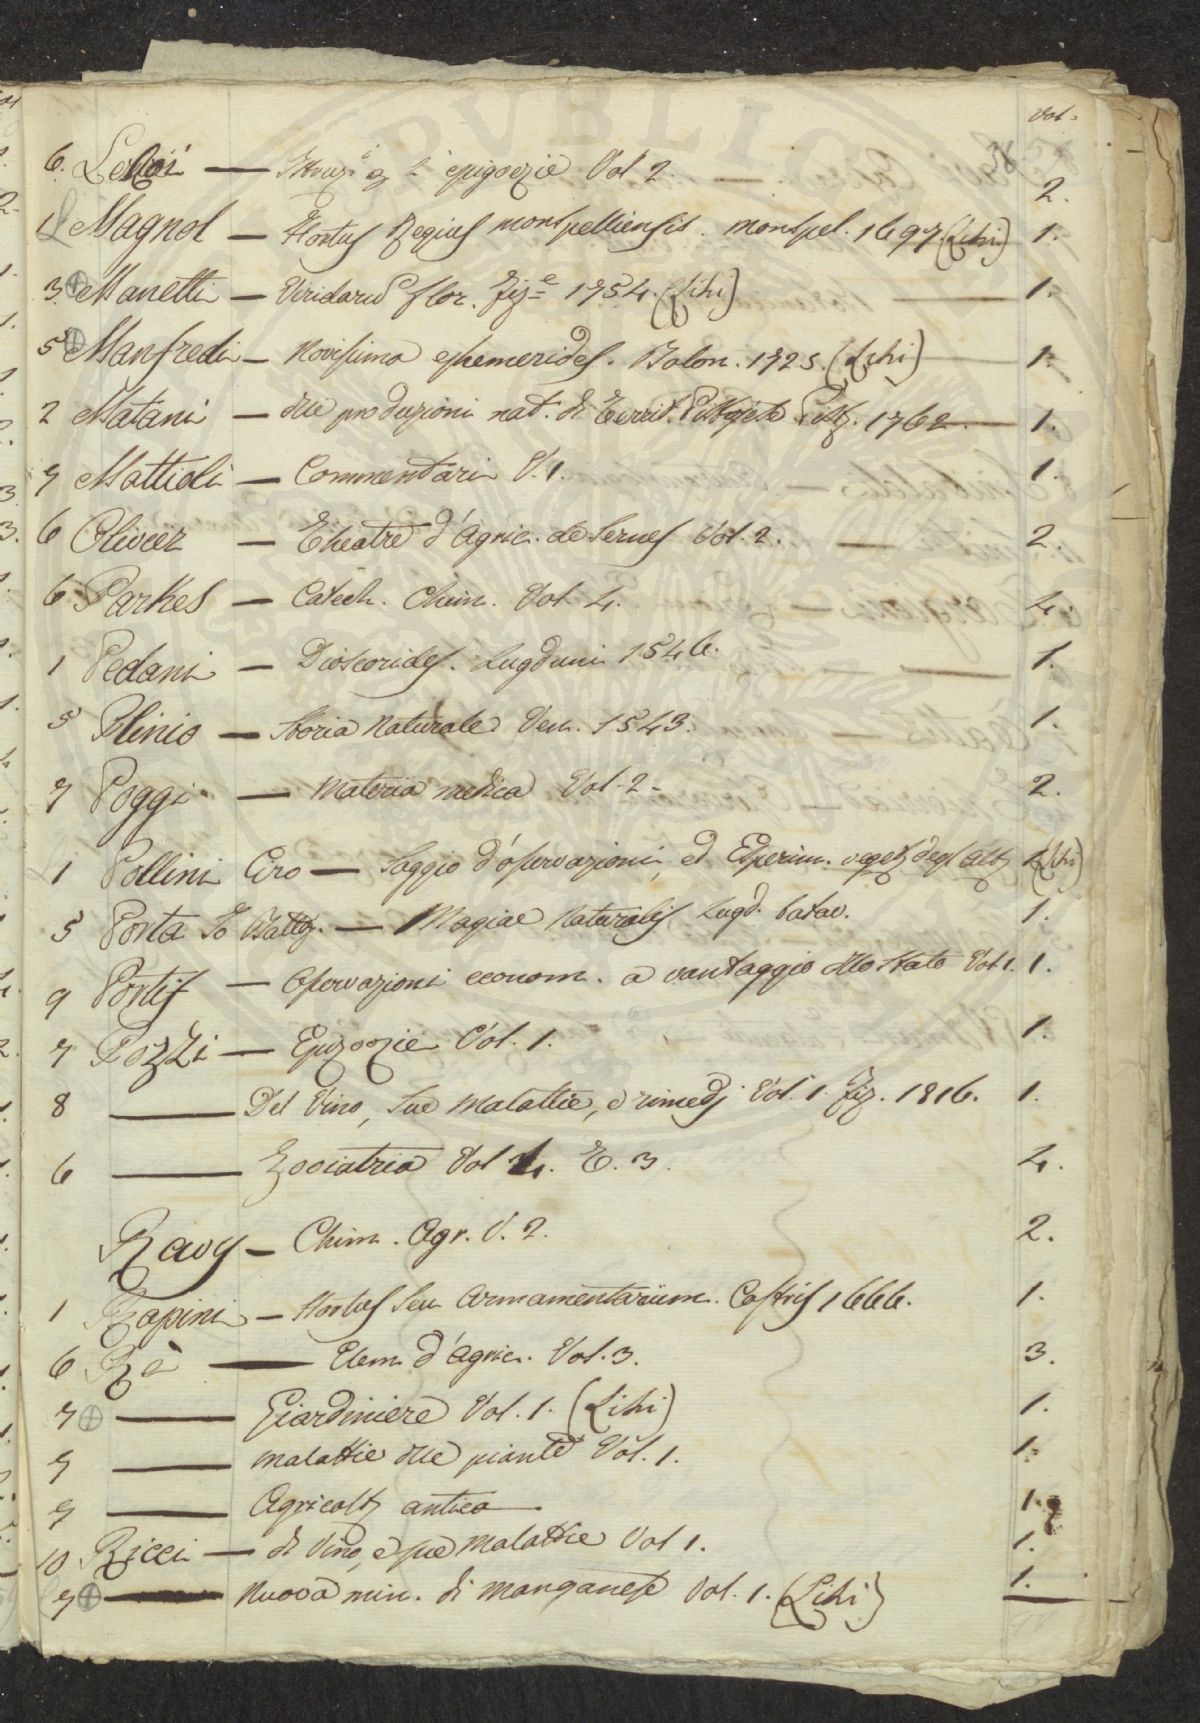 Vol.
6. Leroi — Istruz.i p. l'epizoozie Vol 2. 2.
1 Magnol — Hortus Regius monspelliensis. monspel. 1697. (Lihi) 1.
3. Manetti — Viridariu flor. Fiz.e 1754. (Lihi) 1.
5 Manfredi — Novissima ephemerides. Bolon. 1725. (Lihi) 1.
2 Matani — delle produzioni nat. di Territ. Pistojese Pist. 1762. — 1.
7 Mattioli — Commentari V. 1. 1.
6 Olivier — Theatre d'Agric. de Serres Vol. 2. — 2.
6 Parkes — Catech. Chim. Vol. 4. 4.
1 Pedani — Dioscorides. Lugduni 1546. 1.
5 Plinio — Storia Naturale Ven. 1543. 1.
7 Poggi — Materia medica Vol. 2. 2.
1 Pollini Ciro — Saggio d'osservazioni, ed Esperim. veget. degl'alb. 1 (Lihi)
5 Porta Io Batta. — Magiae Naturalis Lugd. batav. 1.
9 Portis — Osservazioni econom. a vantaggio dello Stato Vol 1. 1.
7 Pozzi — Epizoozie Vol. 1. 1.
8 — Del Vino, Sue Malattie, e rimedj Vol. 1. Fiz. 1816. 1.
6 — Zooiatria Vol 4. T. 3. 4.
Ravy — Chim. Agr. V. 2. 2.
1 Rapini — Hortus Seu Armamentarium. Castris 1666. 1.
6 Rè — Elem. d'Agric. Vol. 3. 3.
7 — Giardiniere Vol. 1. (Lihi) 1.
7 — Malattie delle piante Vol. 1. 1.
7 — Agricolt. antica — 1.
10 Ricci — di Vino, e sue Malattie Vol 1. 1.
7 — Nuova min. di manganese Vol. 1. (Lihi) 1.